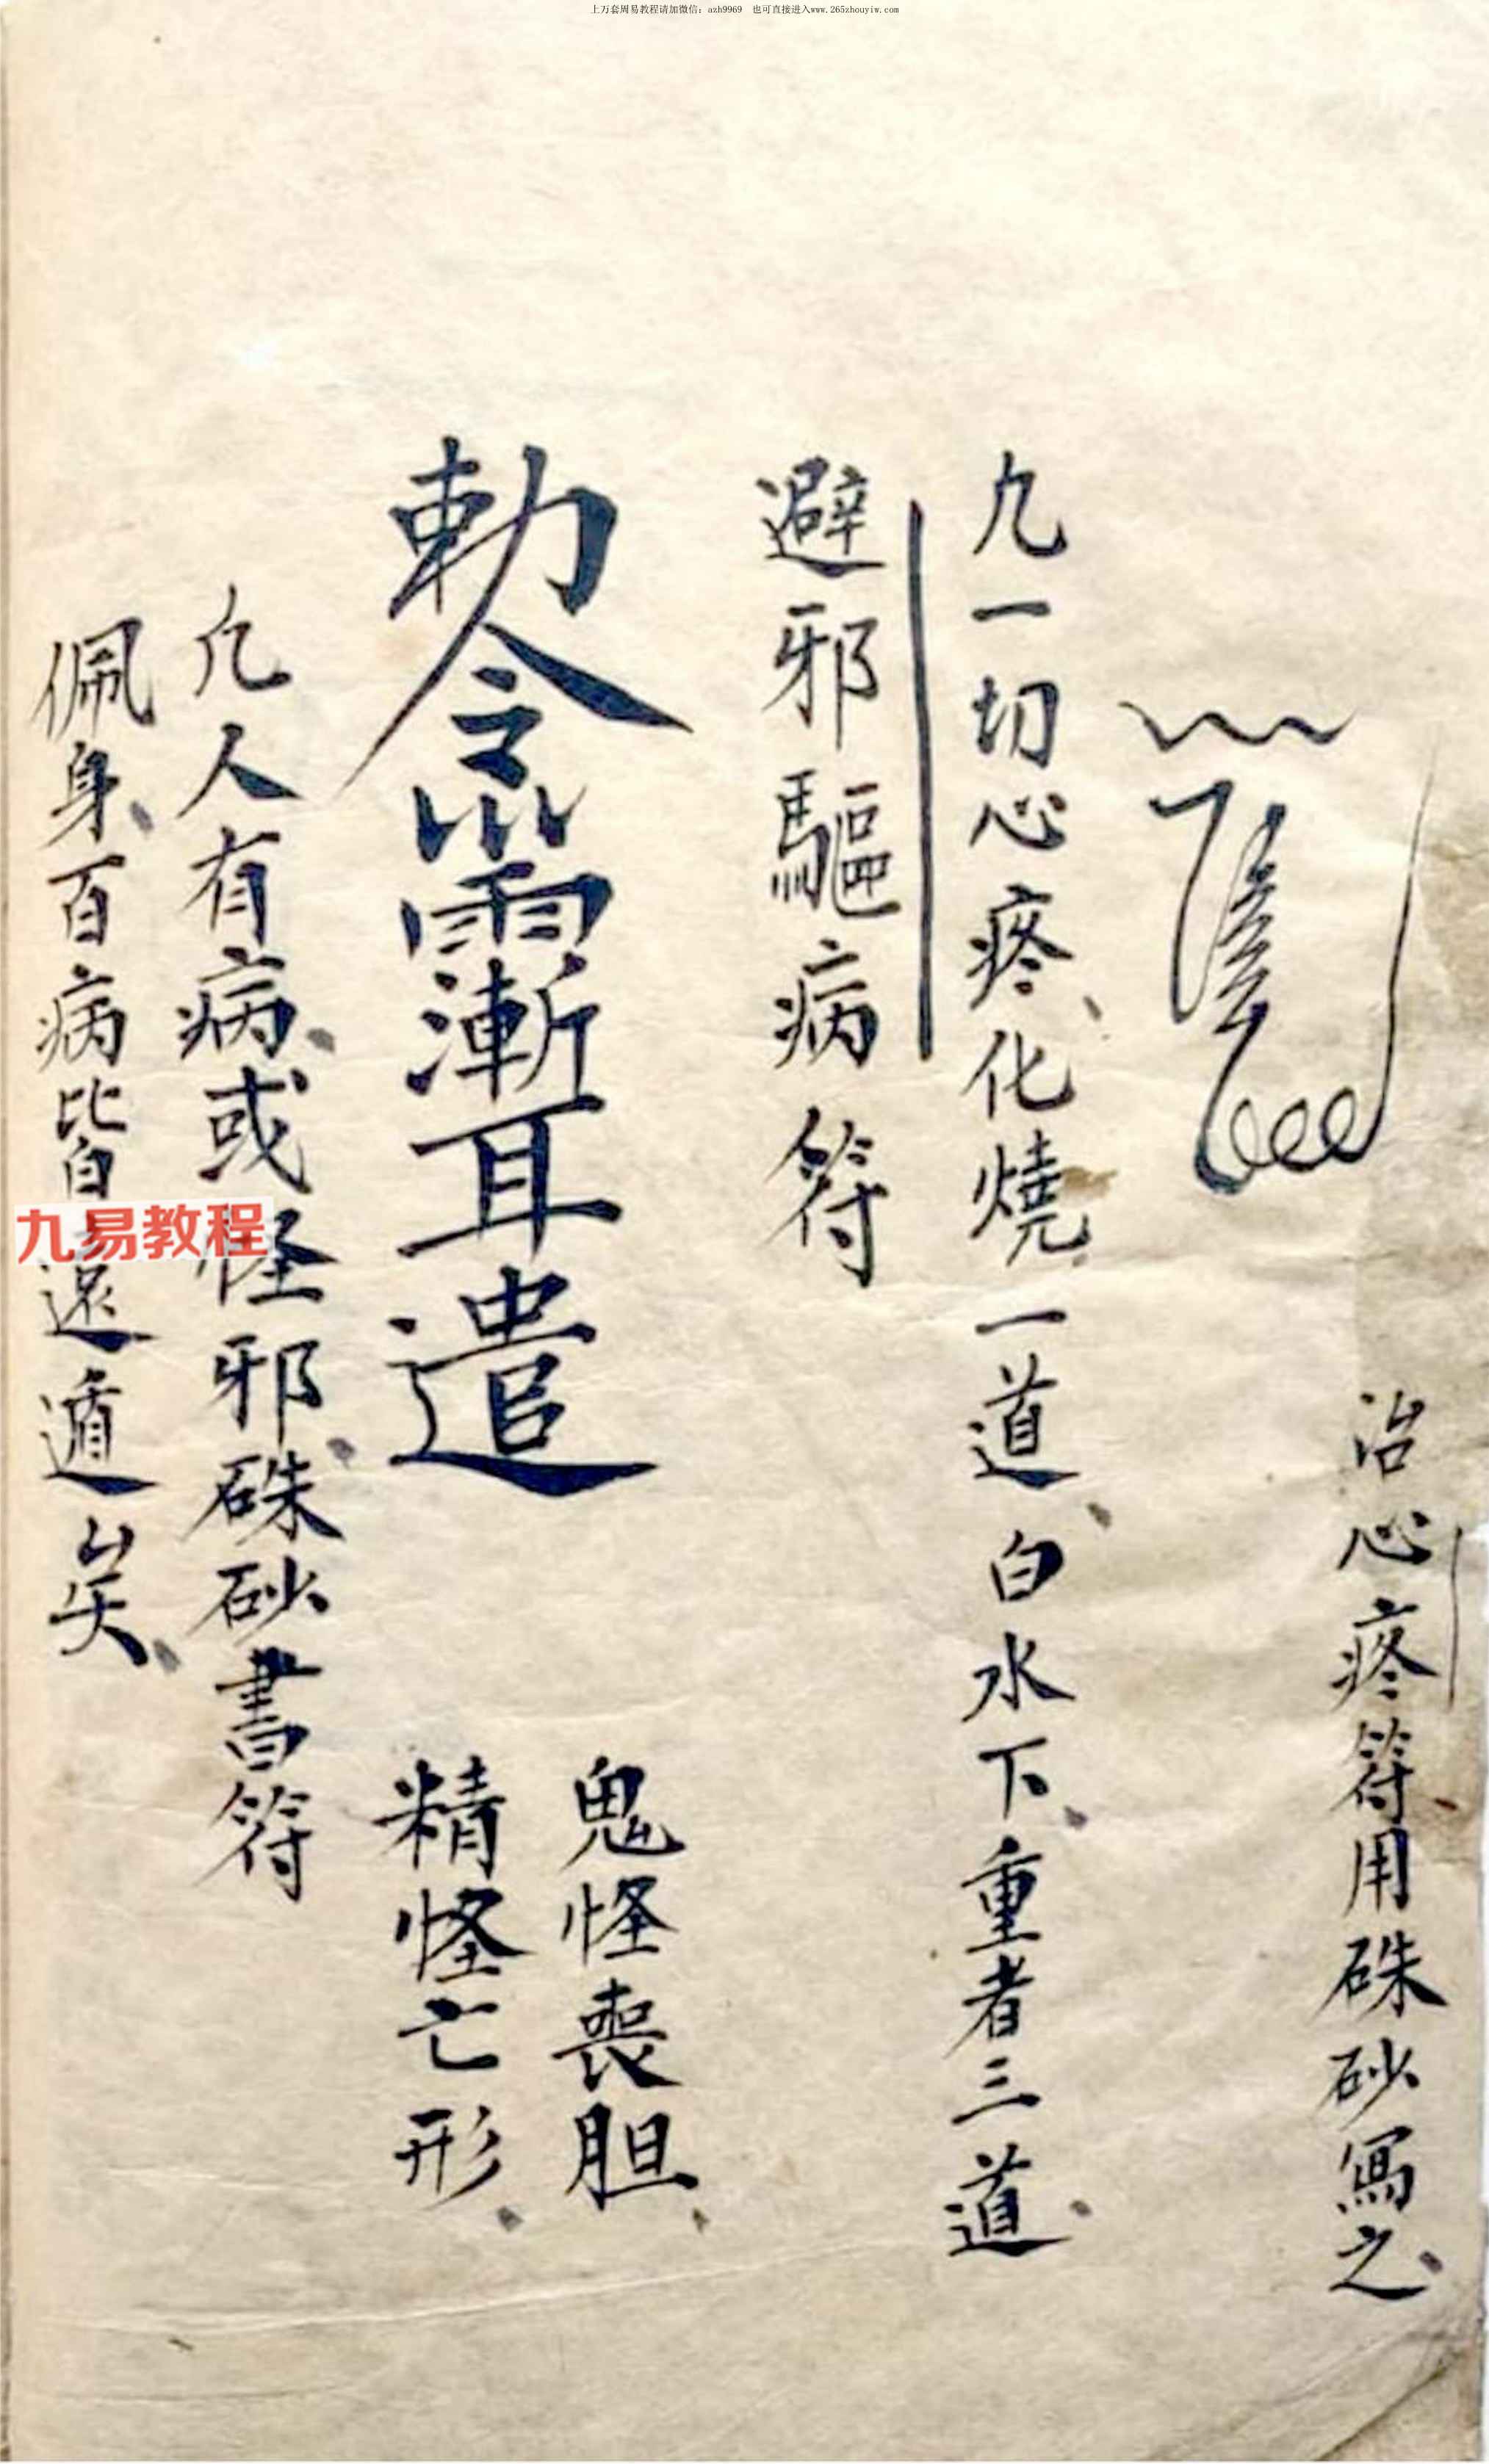 上万套周易教程请加微信：azh9969 也可直接进入www.265zhouyiw.com
治心疼符用硃砂寫之
凢一切心疼、化燒一道、白水下、重者三道
避邪驅病符
勅令
漸耳遣
鬼怪喪胆
精怪亡形
凢人有病、或怪邪、硃砂書符
佩身、百病皆遠遁矣
九易教程